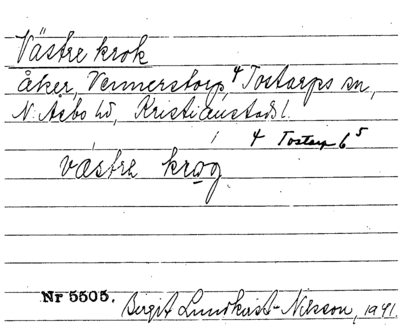 Västre krok
Åker, Vennerstorp, 4 Tostarps sn,
N. Åsbo hd, Kristianstads l.
4 Tostarp 6 5
västrə krog
Nr 5505. Birgit Lundkvist-Nilsson, 1941.